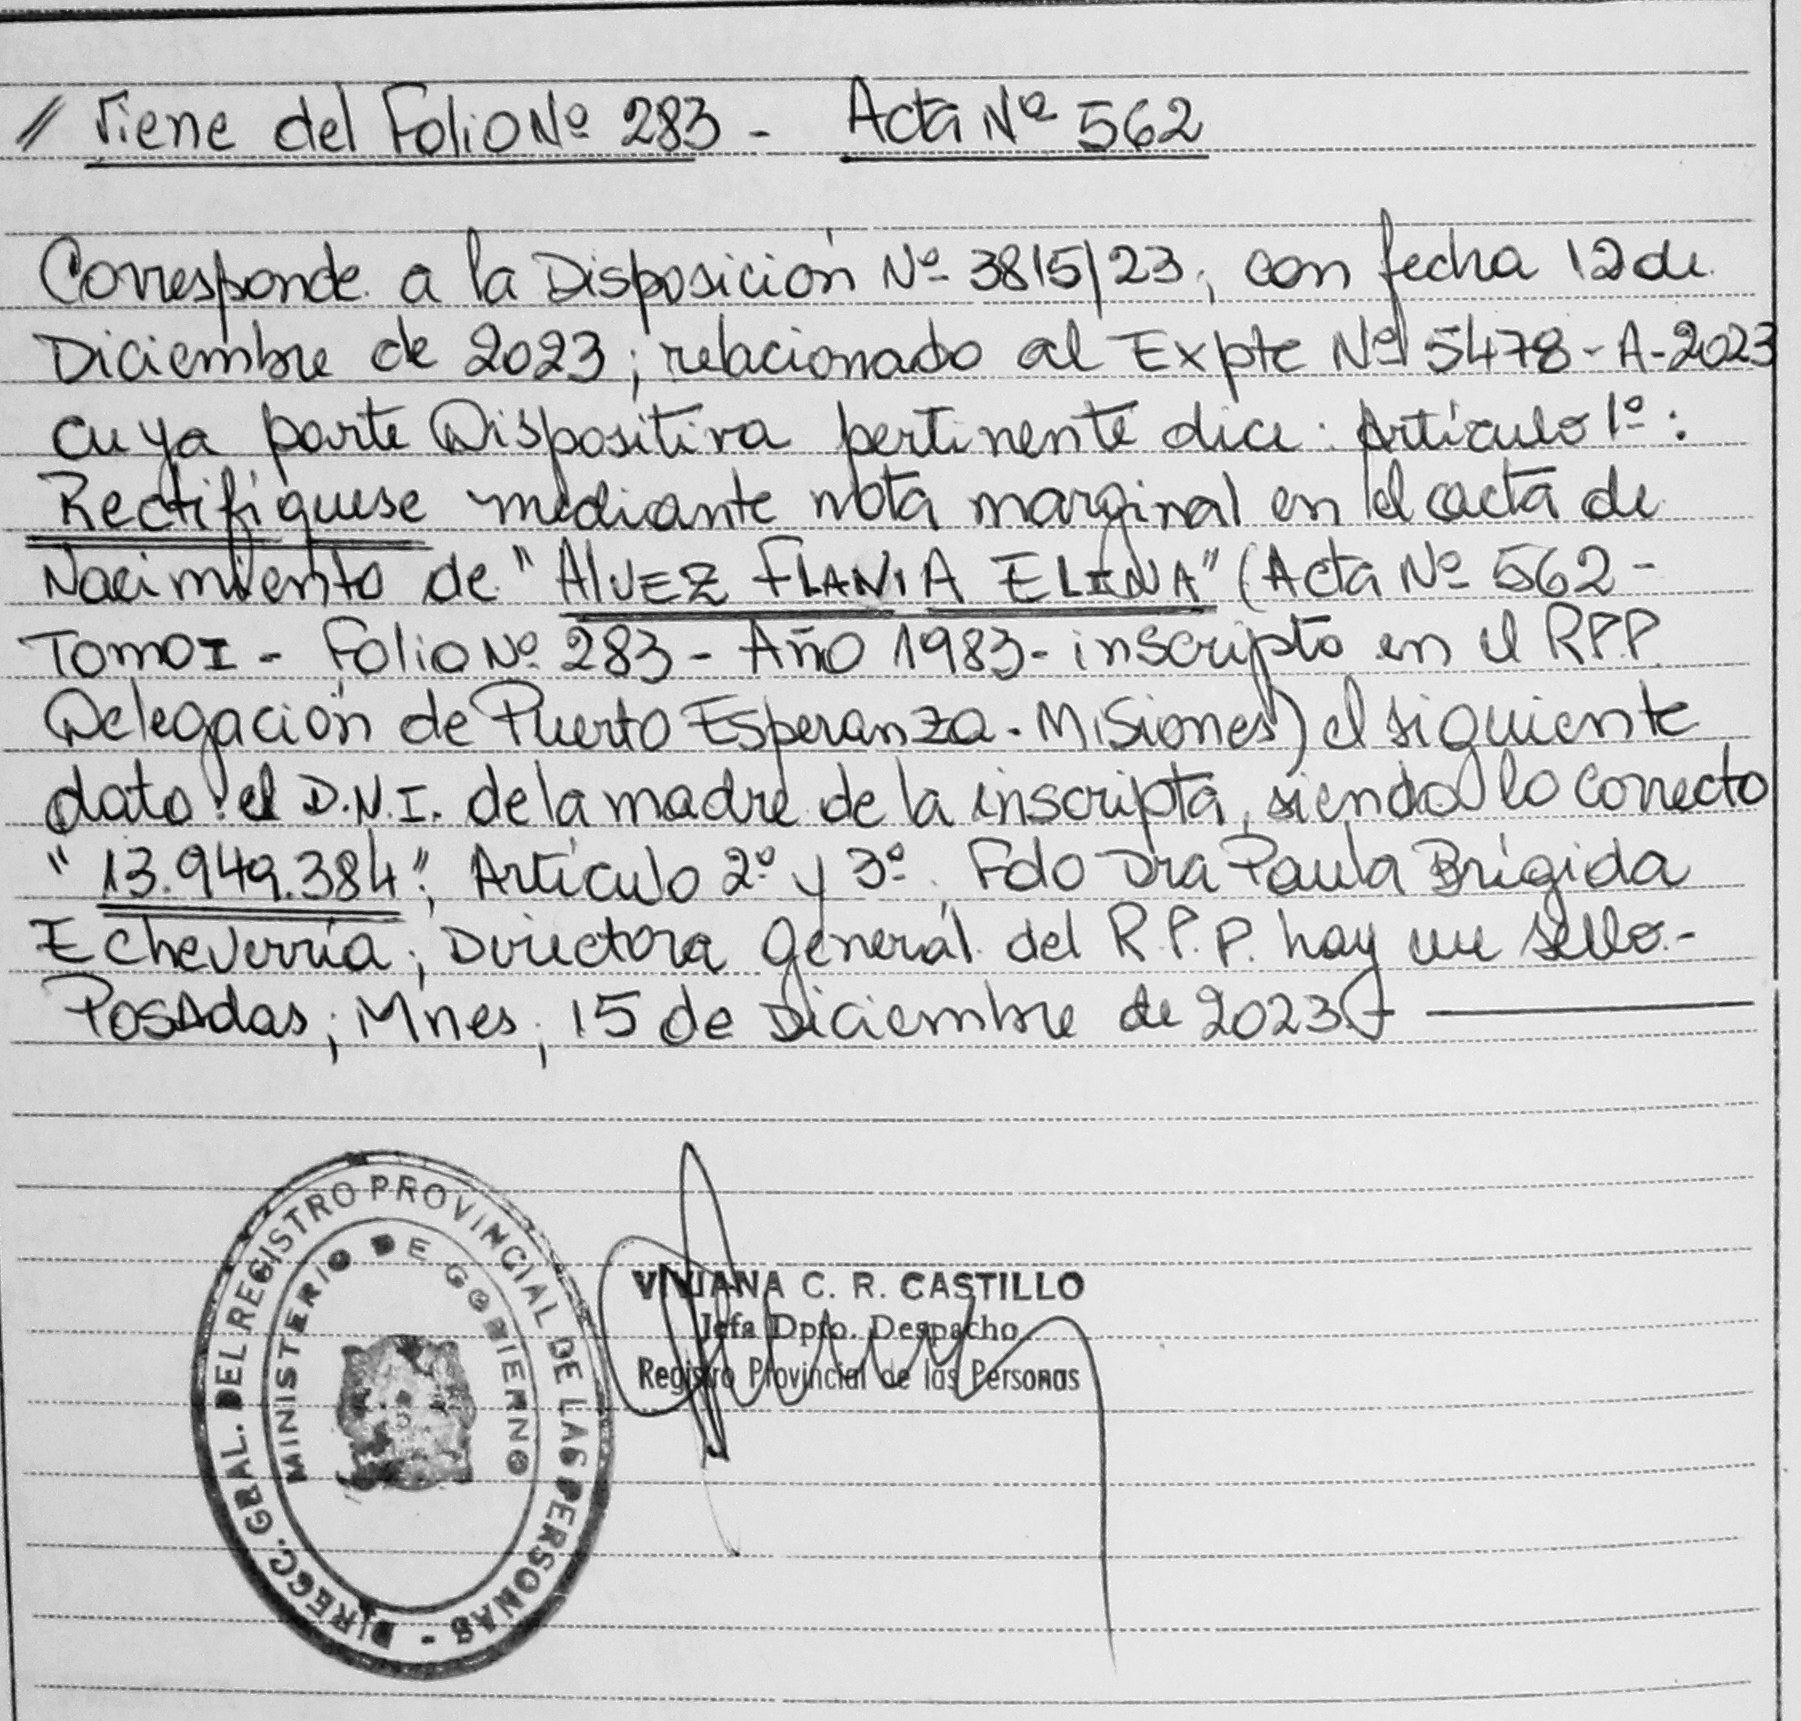 // Viene del Folio Nº 283 - Acta Nº 562
Corresponde a la Disposición Nº 3815/23, con fecha 12 de
Diciembre de 2023; relacionado al Expte Nº 5478-A-2023
cuya parte Dispositiva pertinente dice: Artículo 1º:
Rectifíquese mediante nota marginal en el acta de
Nacimiento de "AlVEZ FLAVIA ELENA" (Acta Nº 562 -
Tomo I - Folio Nº 283 - Año 1983 - inscripto en el RPP.
Delegación de Puerto Esperanza - Misiones) el siguiente
dato: el D.N.I. de la madre de la inscripta, siendo lo correcto
"13.949.384"; Artículo 2º y 3º. Fdo Dra Paula Brígida
Echeverría; Directora General del R.P.P. hay un sello.-
Posadas; Mnes; 15 de Diciembre de 2023.-
DIRECC. GRAL. DEL REGISTRO PROVINCIAL DE LAS PERSONAS -
MINISTERIO DE GOBIERNO
VIVIANA C. R. CASTILLO
Jefa Dpto. Despacho
Registro Provincial de las Personas